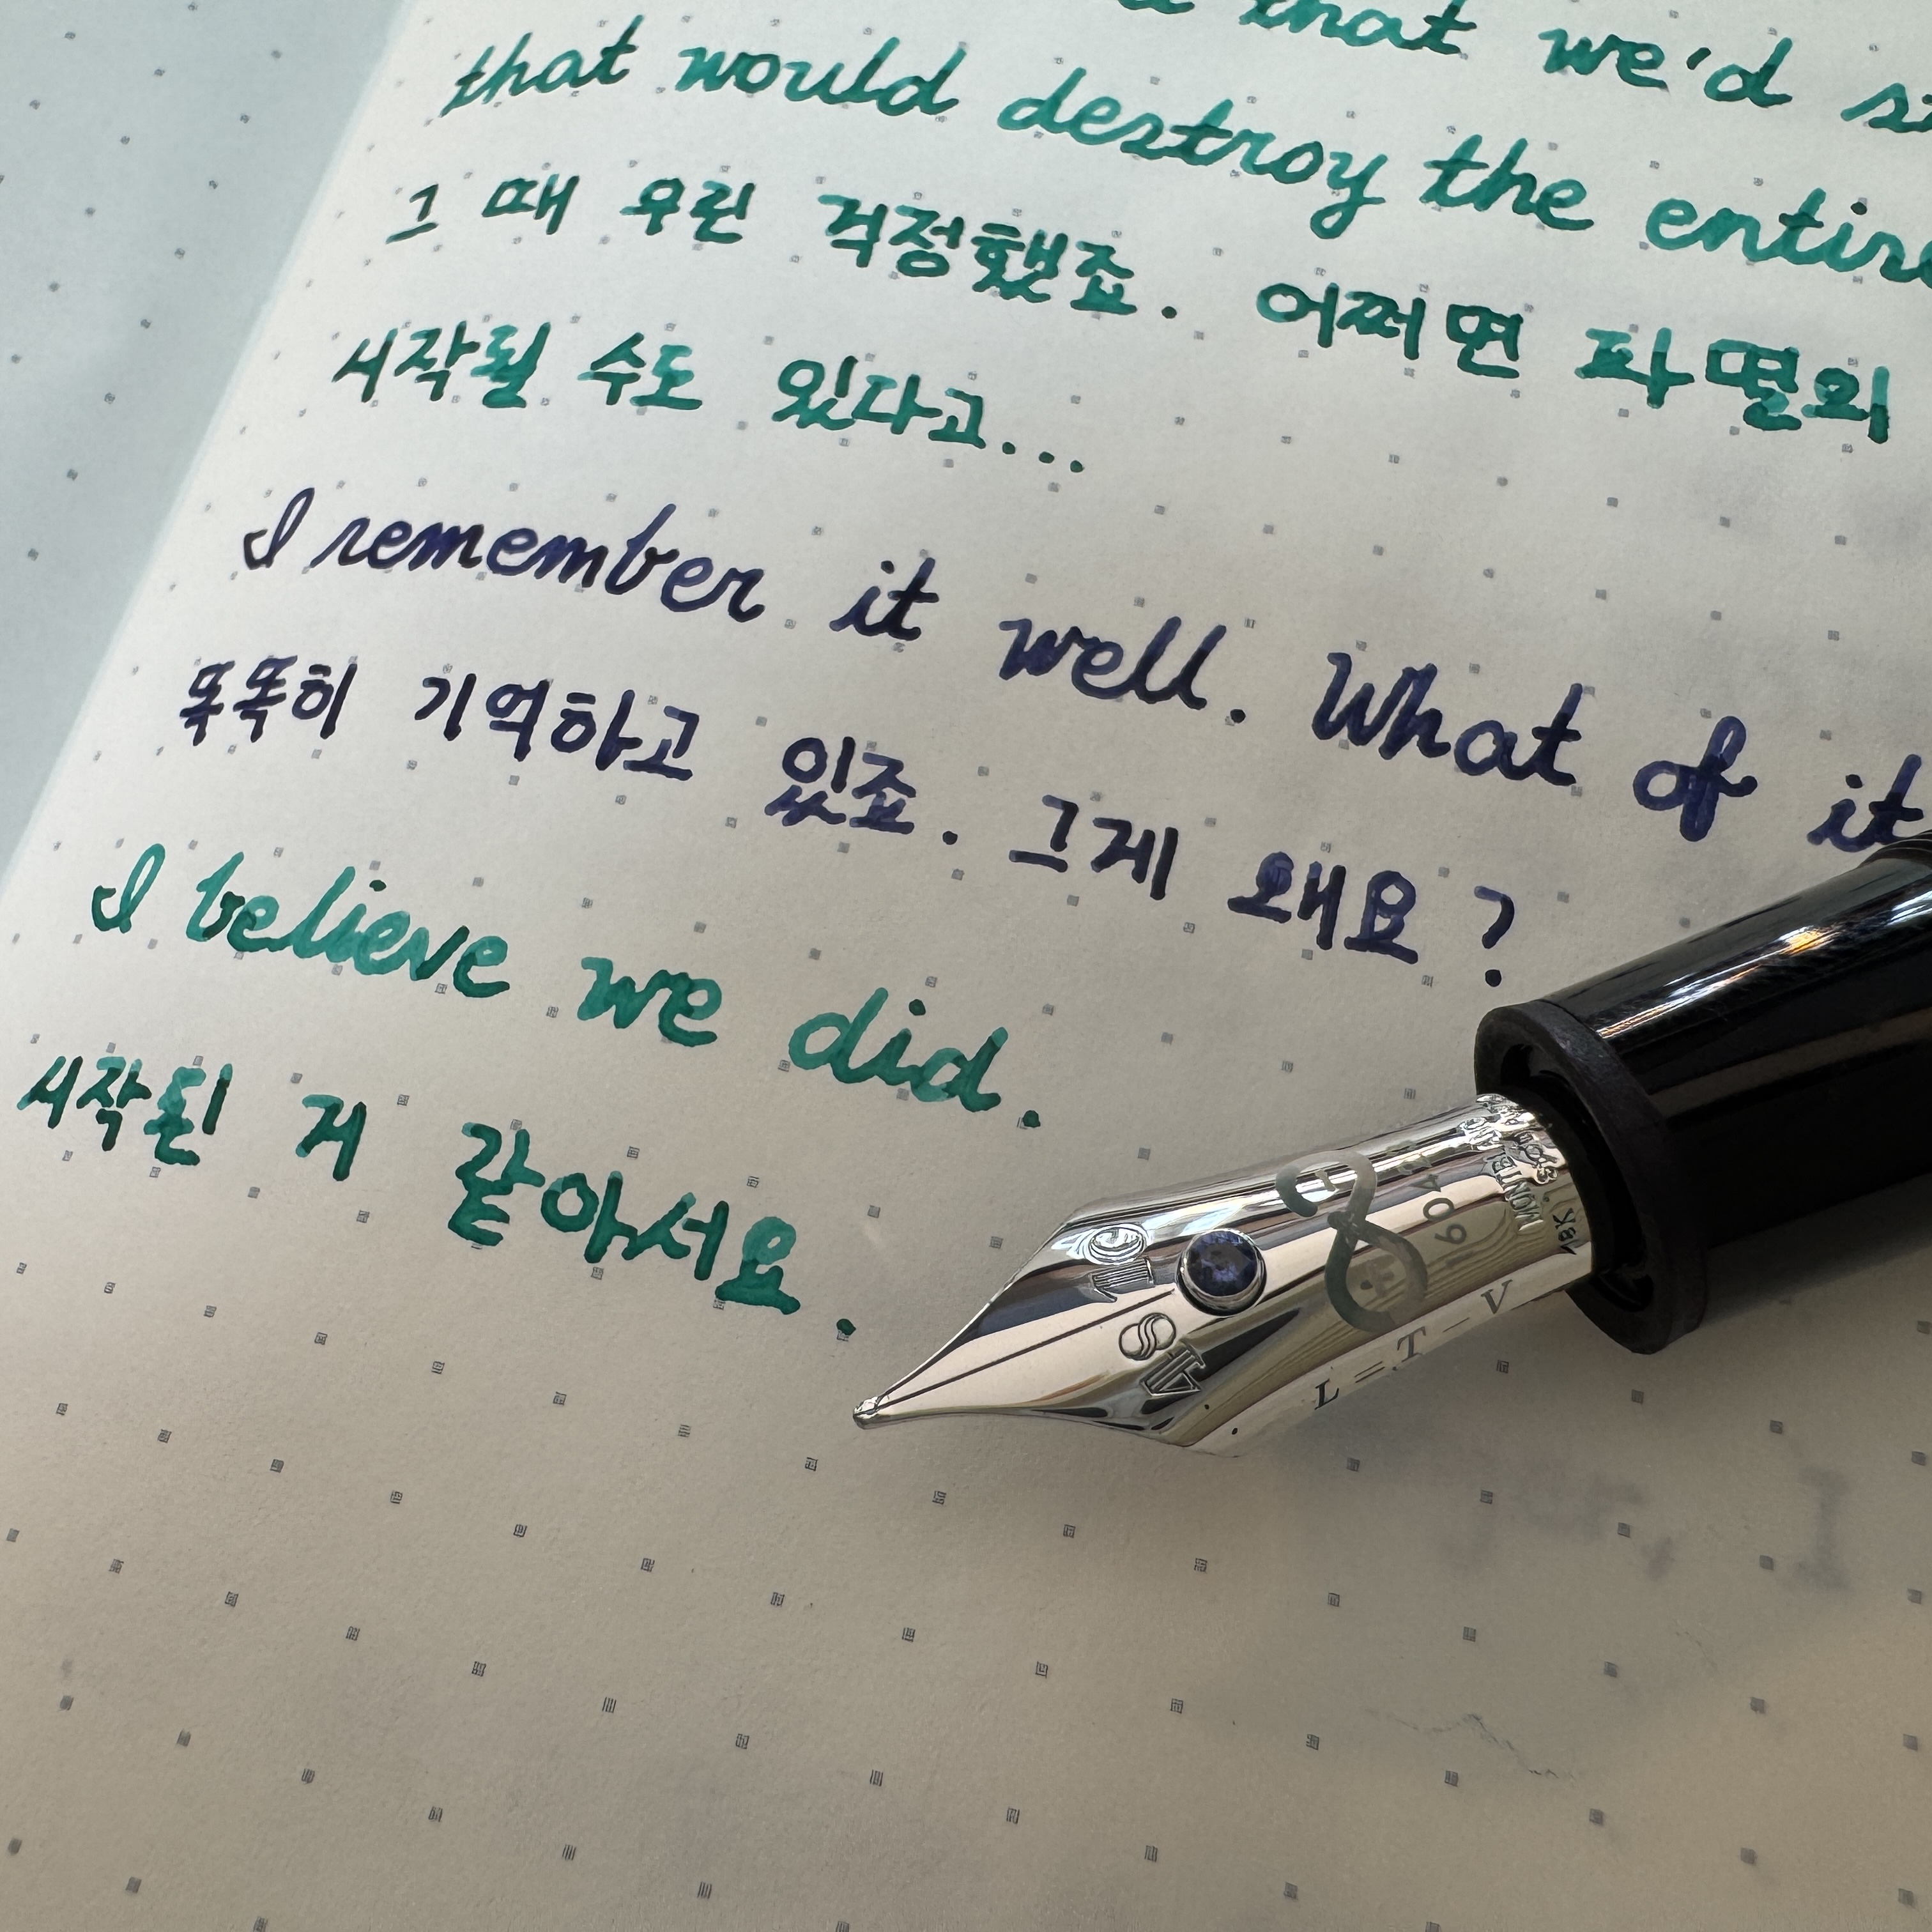 that we'd
that would destroy the entire
그 때 우린 걱정했죠. 어쩌면 파멸의
시작될 수도 있다고...
I remember it well. What of it
똑똑히 기억하고 있죠. 그게 왜요?
I believe we did.
시작된 거 같아서요.
MONTBLANC
18K
L = T - V